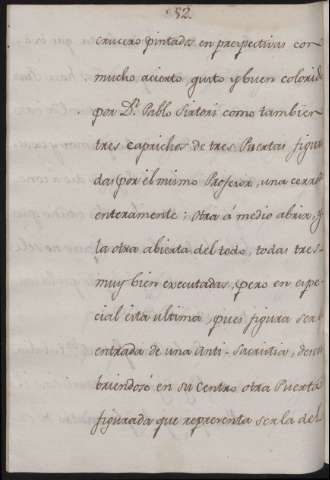 52.
crucero pintada en prespectivas con
mucho acierto, gusto y buen colorid
por Dn. Pablo Sistori como tambien
tres caprichos de tres Puertas figura
das por el mismo Profesor, una cerra
enteramente; otra á medio abrir, y
la otra abierta del todo, todas tres
muy bien executadas, pero en espe
cial esta ultima, pues figura ser
entrada de una Anti-Sacristia, descu
briendosé en su Centro otra Puerta
figurada que representa ser la del